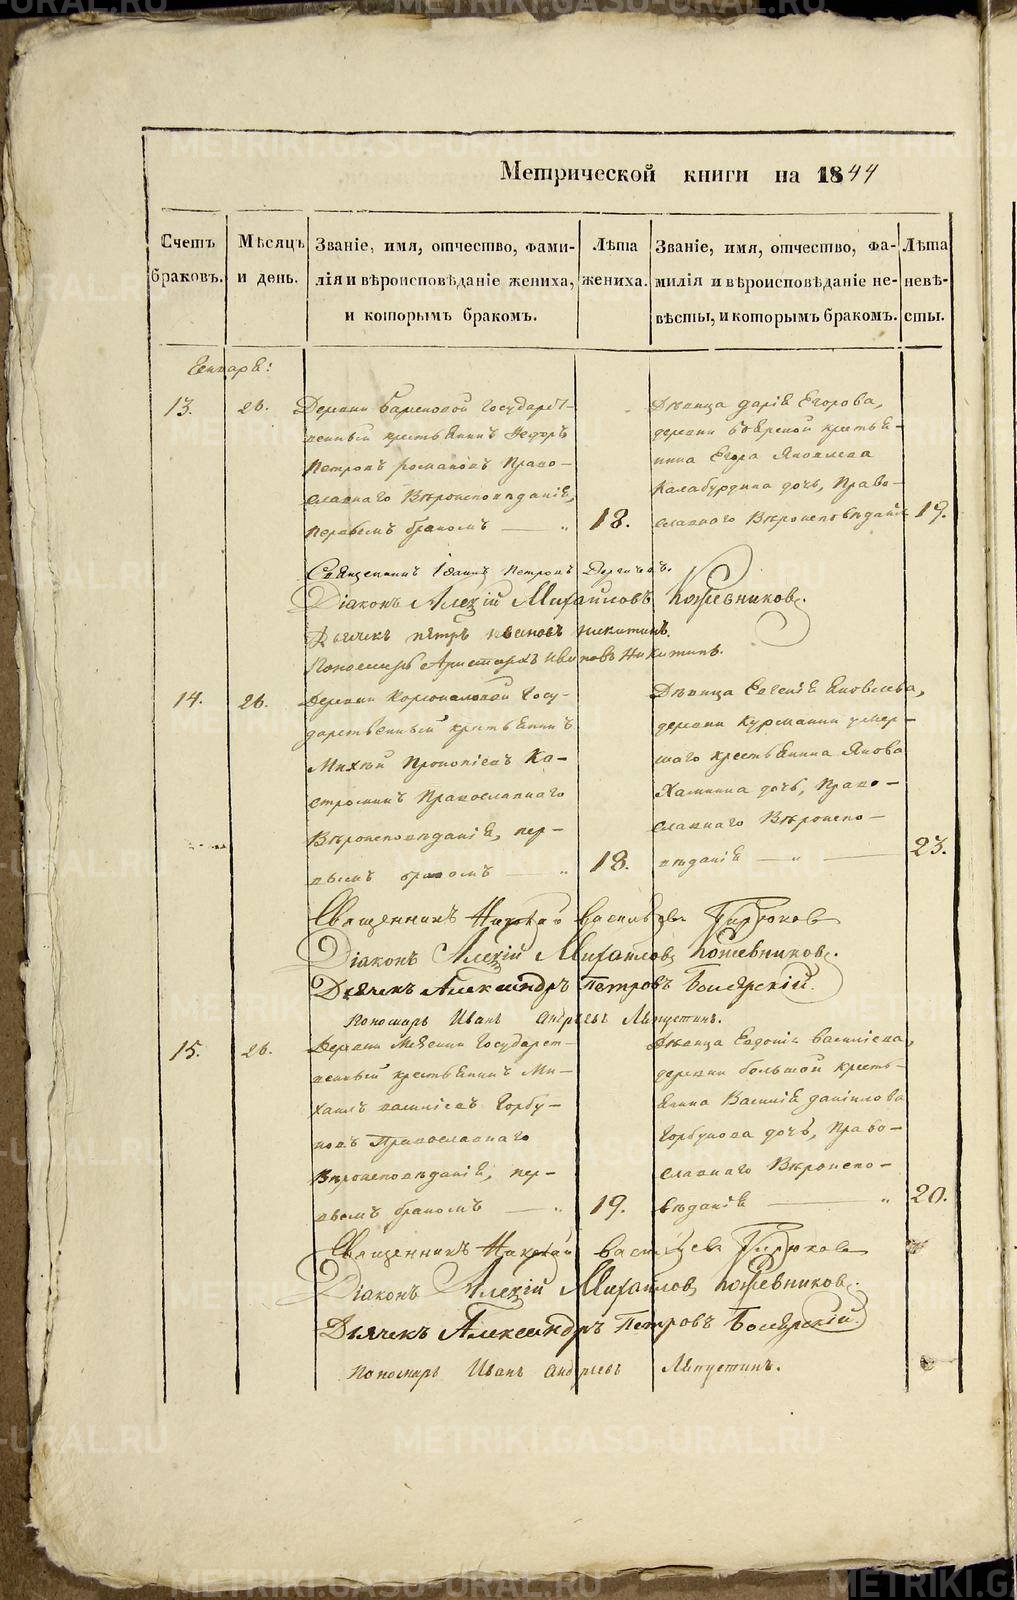 Метрической книги на 1844
Счетъ браковъ.
Мѣсяцъ и день.
Званіе, имя, отчество, фами-
лія и вѣроисповѣданіе жениха,
и которымъ бракомъ.
Лѣта
жениха.
Званіе, имя, отчество, фа-
милія и вѣроисповѣданіе не-
вѣсты, и которымъ бракомъ.
Лѣта
невѣ-
сты.
13. 26.
Деревни государст-
венный крестьянинъ Ѳедоръ
Петровъ Романовъ Право-
славнаго Вѣроисповѣданія,
первымъ бракомъ 18.
Дѣвица Дарія Егорова,
деревни Боярской крестья-
нина Егора Яковлева
Калабурдина дочь, Право-
славнаго Вѣроисповѣданія 19.
Священникъ Іоаннъ Петровъ
Діаконъ Алексій Михайловъ Кожевниковъ.
Дьячекъ Петръ Ивановъ Никитинъ.
Пономарь Аристархъ Ивановъ Никитинъ.
14. 26.
Деревни Госу-
дарственный крестьянинъ
Михѣй Прокопіевъ Ко-
строминъ Православнаго
Вѣроисповѣданія, пер-
вымъ бракомъ 18.
Дѣвица Евгенія Яковлева,
деревни умер-
шаго крестьянина Якова
дочь, Право-
славнаго Вѣроиспо-
вѣданія 23.
Священникъ Николай Васильевъ Бирюковъ
Діаконъ Алексій Михайловъ Кожевниковъ.
Дьячекъ Александръ Петровъ Боярскій.
Пономарь Иванъ Андреевъ Ляпустинъ.
15. 26.
Деревни Государст-
венный крестьянинъ Ми-
хаилъ Васильевъ Горбу-
новъ Православнаго
Вѣроисповѣданія, пер-
вымъ бракомъ 19.
Дѣвица Евдокія Василіева,
деревни Большой кресть-
янина Василія Даніилова
Горбунова дочь, Право-
славнаго Вѣроиспо-
вѣданія 20.
Священникъ Николай Васильевъ Бирюковъ
Діаконъ Алексій Михайловъ Кожевниковъ.
Дьячекъ Александръ Петровъ Боярскій.
Пономарь Иванъ Андреевъ Ляпустинъ.
METRIKI.GASO-URAL.RU